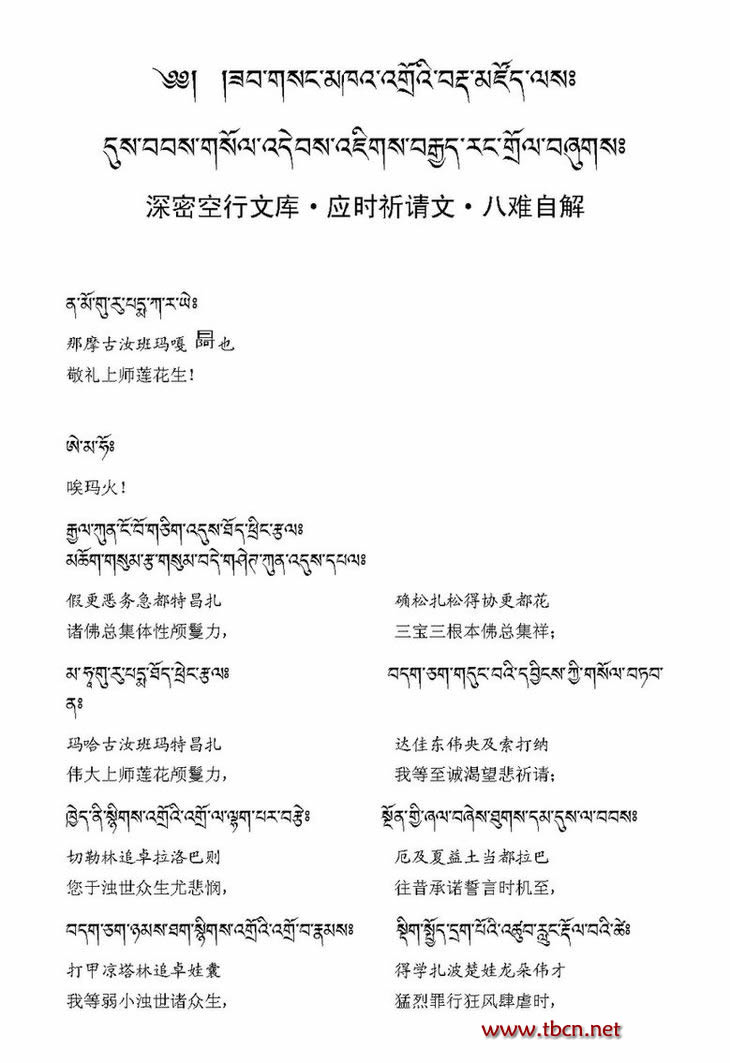 ༄༅། །ཟབ་གསང་མཁའ་འགྲོའི་བརྡ་མཛོད་ལས༔
དུས་བབས་གསོལ་འདེབས་འཇིགས་བརྒྱད་རང་གྲོལ་བཞུགས༔
深密空行文库·应时祈请文·八难自解
ན་མོ་གུ་རུ་པདྨ་ཀ་ར་ཡེ༔
那摩古汝班玛嘎 也
敬礼上师莲花生！
ཨེ་མ་ཧོ༔
唉玛火！
རྒྱལ་ཀུན་ངོ་བོ་གཅིག་འདུས་ཐོད་ཕྲེང་རྩལ༔
མཆོག་གསུམ་རྩ་གསུམ་བདེ་གཤེཊ་ཀུན་འདུས་དཔལ༔
假更恶务急都特昌扎 确松扎松得协更都花
诸佛总集体性颅鬘力， 三宝三根本佛总集祥；
མ་ཧཱ་གུ་རུ་པདྨ་ཐོད་ཕྲེང་རྩལ༔ བདག་ཅག་གདུང་བའི་དབྱིངས་ཀྱི་གསོལ་བཏབ་
ན༔
玛哈古汝班玛特昌扎 达佳东伟央及索打纳
伟大上师莲花颅鬘力， 我等至诚渴望悲祈请；
ཁྱེད་ནི་སྙིགས་འགྲོའི་འགྲོ་ལ་ལྷག་པར་བརྩེ༔ སྔོན་གྱི་ཞལ་བཞེས་ཐུགས་དམ་དུས་ལ་བབས༔
切勒林追卓拉洛巴则 厄及夏益土当都拉巴
您于浊世众生尤悲悯， 往昔承诺誓言时机至，
བདག་ཅག་ཉམས་ཐག་སྙིགས་འགྲོའི་འགྲོ་བ་རྣམས༔ སྡིག་སྤྱོད་དྲག་པོའི་འཚུབ་རླུང་རྡོལ་བའི་ཚེ༔
打甲凉塔林追卓娃囊 得学扎波楚娃龙朵伟才
我等弱小浊世诸众生， 猛烈罪行狂风肆虐时，
www.tbcn.net